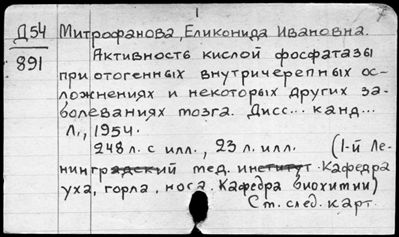 1
7
Д54 Митрофанова, Еликонида Ивановна.
891 Активность кислой фосфатазы
при отогенных внутричерепных ос-
ложнениях и некоторых других за-
болеваниях мозга. Дисс... канд...
Л., 1954.
248 л. с илл., 23 л. илл. (1-й Ле-
нинградский мед. институт. Кафедра
уха, горла, носа. Кафедра биохимии)
Ст. след. карт.